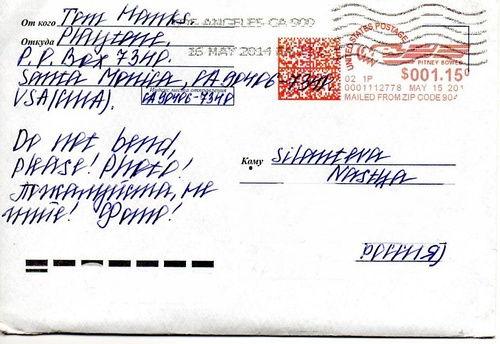 От кого Tom Hanks,
Откуда Playtone,
P.O. Box 7340.
Santa Monica, CA 90406-7340.
USA (США).
CA 90406-7340
LOS ANGELES CA 900
16 MAY 2014
UNITED STATES POSTAGE
PITNEY BOWES
02 1P
$001.15⁰
0001112778 MAY 15 201
MAILED FROM ZIP CODE 904
Do not bend,
please! Photo!
Пожалуйста, не
гните! Фото!
Кому Silanteva
Nastya
Россия